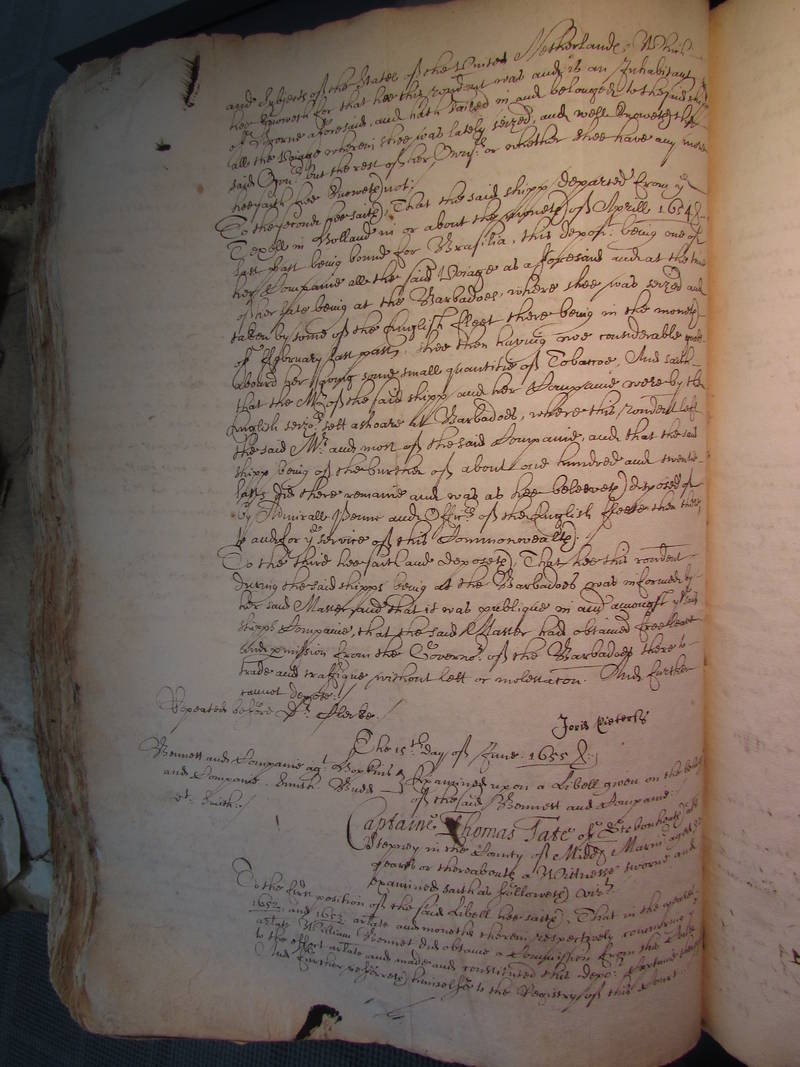 and Subjects of the States of the United Netherlands, Which
hee knoweth for that hee this rondent was and is an Inhabitant
of Horne aforesaid, and hath sailed in and belonged to the said shipp
all the Voiage wherein shee was lately seized, and well knoweth the
said but the rest of her Own:rs or whether shee have any more
hee saith hee knoweth not./
To the second hee saith, That the said shipp departed from ye
Texell in Holland in or about the moneth of Aprill 1654
last past being bound for Brasilia, this depot: being one of
her Companie all the said Voiage as aforesaid and at the time
of her late being at the Barbadoes, where shee was seized and
taken by some of the English fleet there being in the moneth
of ffebruary last past, shee then having noe considerable goods
aboard her saving some small quantitie of Tobaccoe, And saith
that the Mr of the said shipp and her Companie were by the
English seizrs sett ashoare at Barbadoes, where this rondent left
the said Mr and most of the said Companie, and that the said
shipp being of the burthen of about one hundred and twentie
lasts did there remaine and was as hee beleeveth disposed of
by Admirall Penne and Officrs of the English fleete then there,
to and for ye service of this Commonwealth./
To the third hee saith and deposeth, That hee this rondent
during the said shipps being at the Barbadoes was informed by
her said Master, and that it was publique in and amongst ye said
shipps Companie, that the said Master had obtained free leave
and pmission from the Governor of the Barbadoes there to
trade and traffique without lett or molestacon. And further
cannot depose./
Repeated before Dr. Clerke./
Joris Pieters
The 15th day of June 1655
Bennett and Companie agt Hopkins
and Companie. Smith. Budd
Examined upon a Libell given on the behalfe
of the said Bennett and Companie.
dt. Smith./
Captaine Thomas Tate of Stebonheath als
Stepney in the County of Middx Marinr aged
yeares or thereabouts a Wittnesse sworne and
examined saith as followeth vizt
To the first position of the said Libell hee saith, That in the yeares
1652 and 1653 arlate and moneths therein respectively
arlate William Bennet did obtaine a Commission from the
to the effect arlate and made and constituted this depot Captaine
And further referreth himselfe to the Registry of this Court